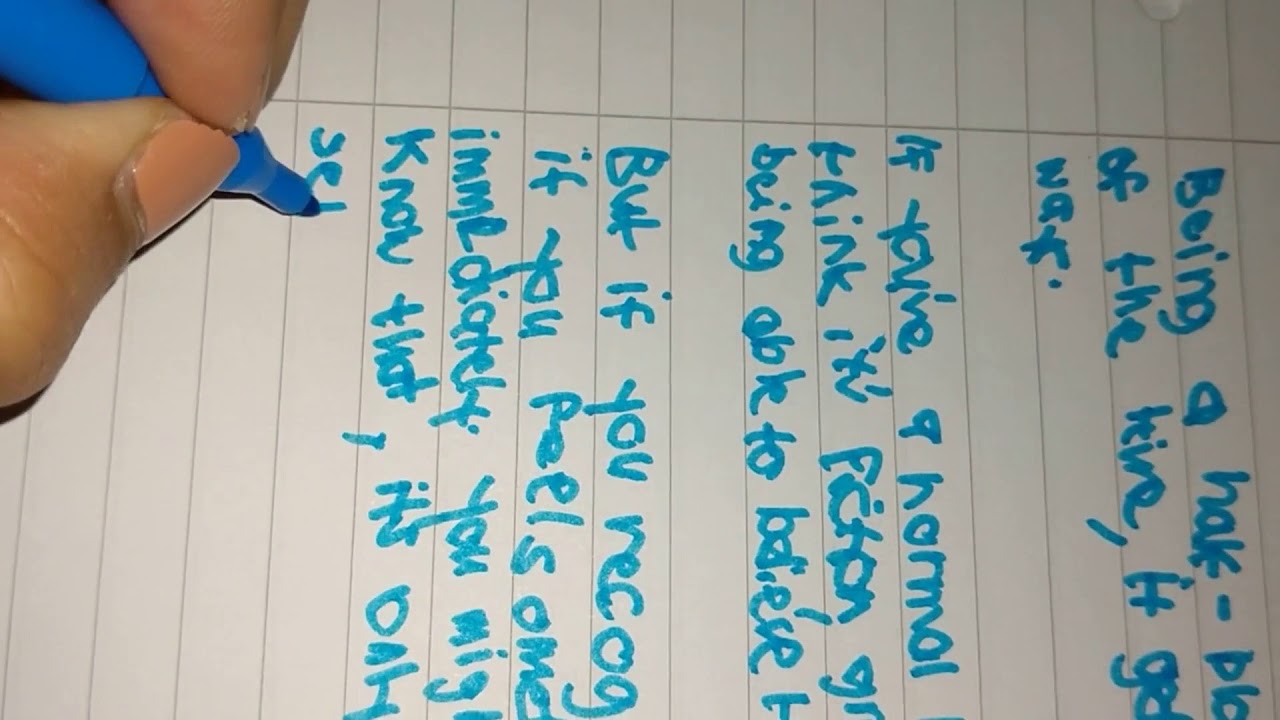 Being a half-bl
of the time, it ge
way.
If you're a normal
think it's fiction, gr
being able to believe t
But if you recog
if you feel some
immediately. You mig
know that, it's only
sel